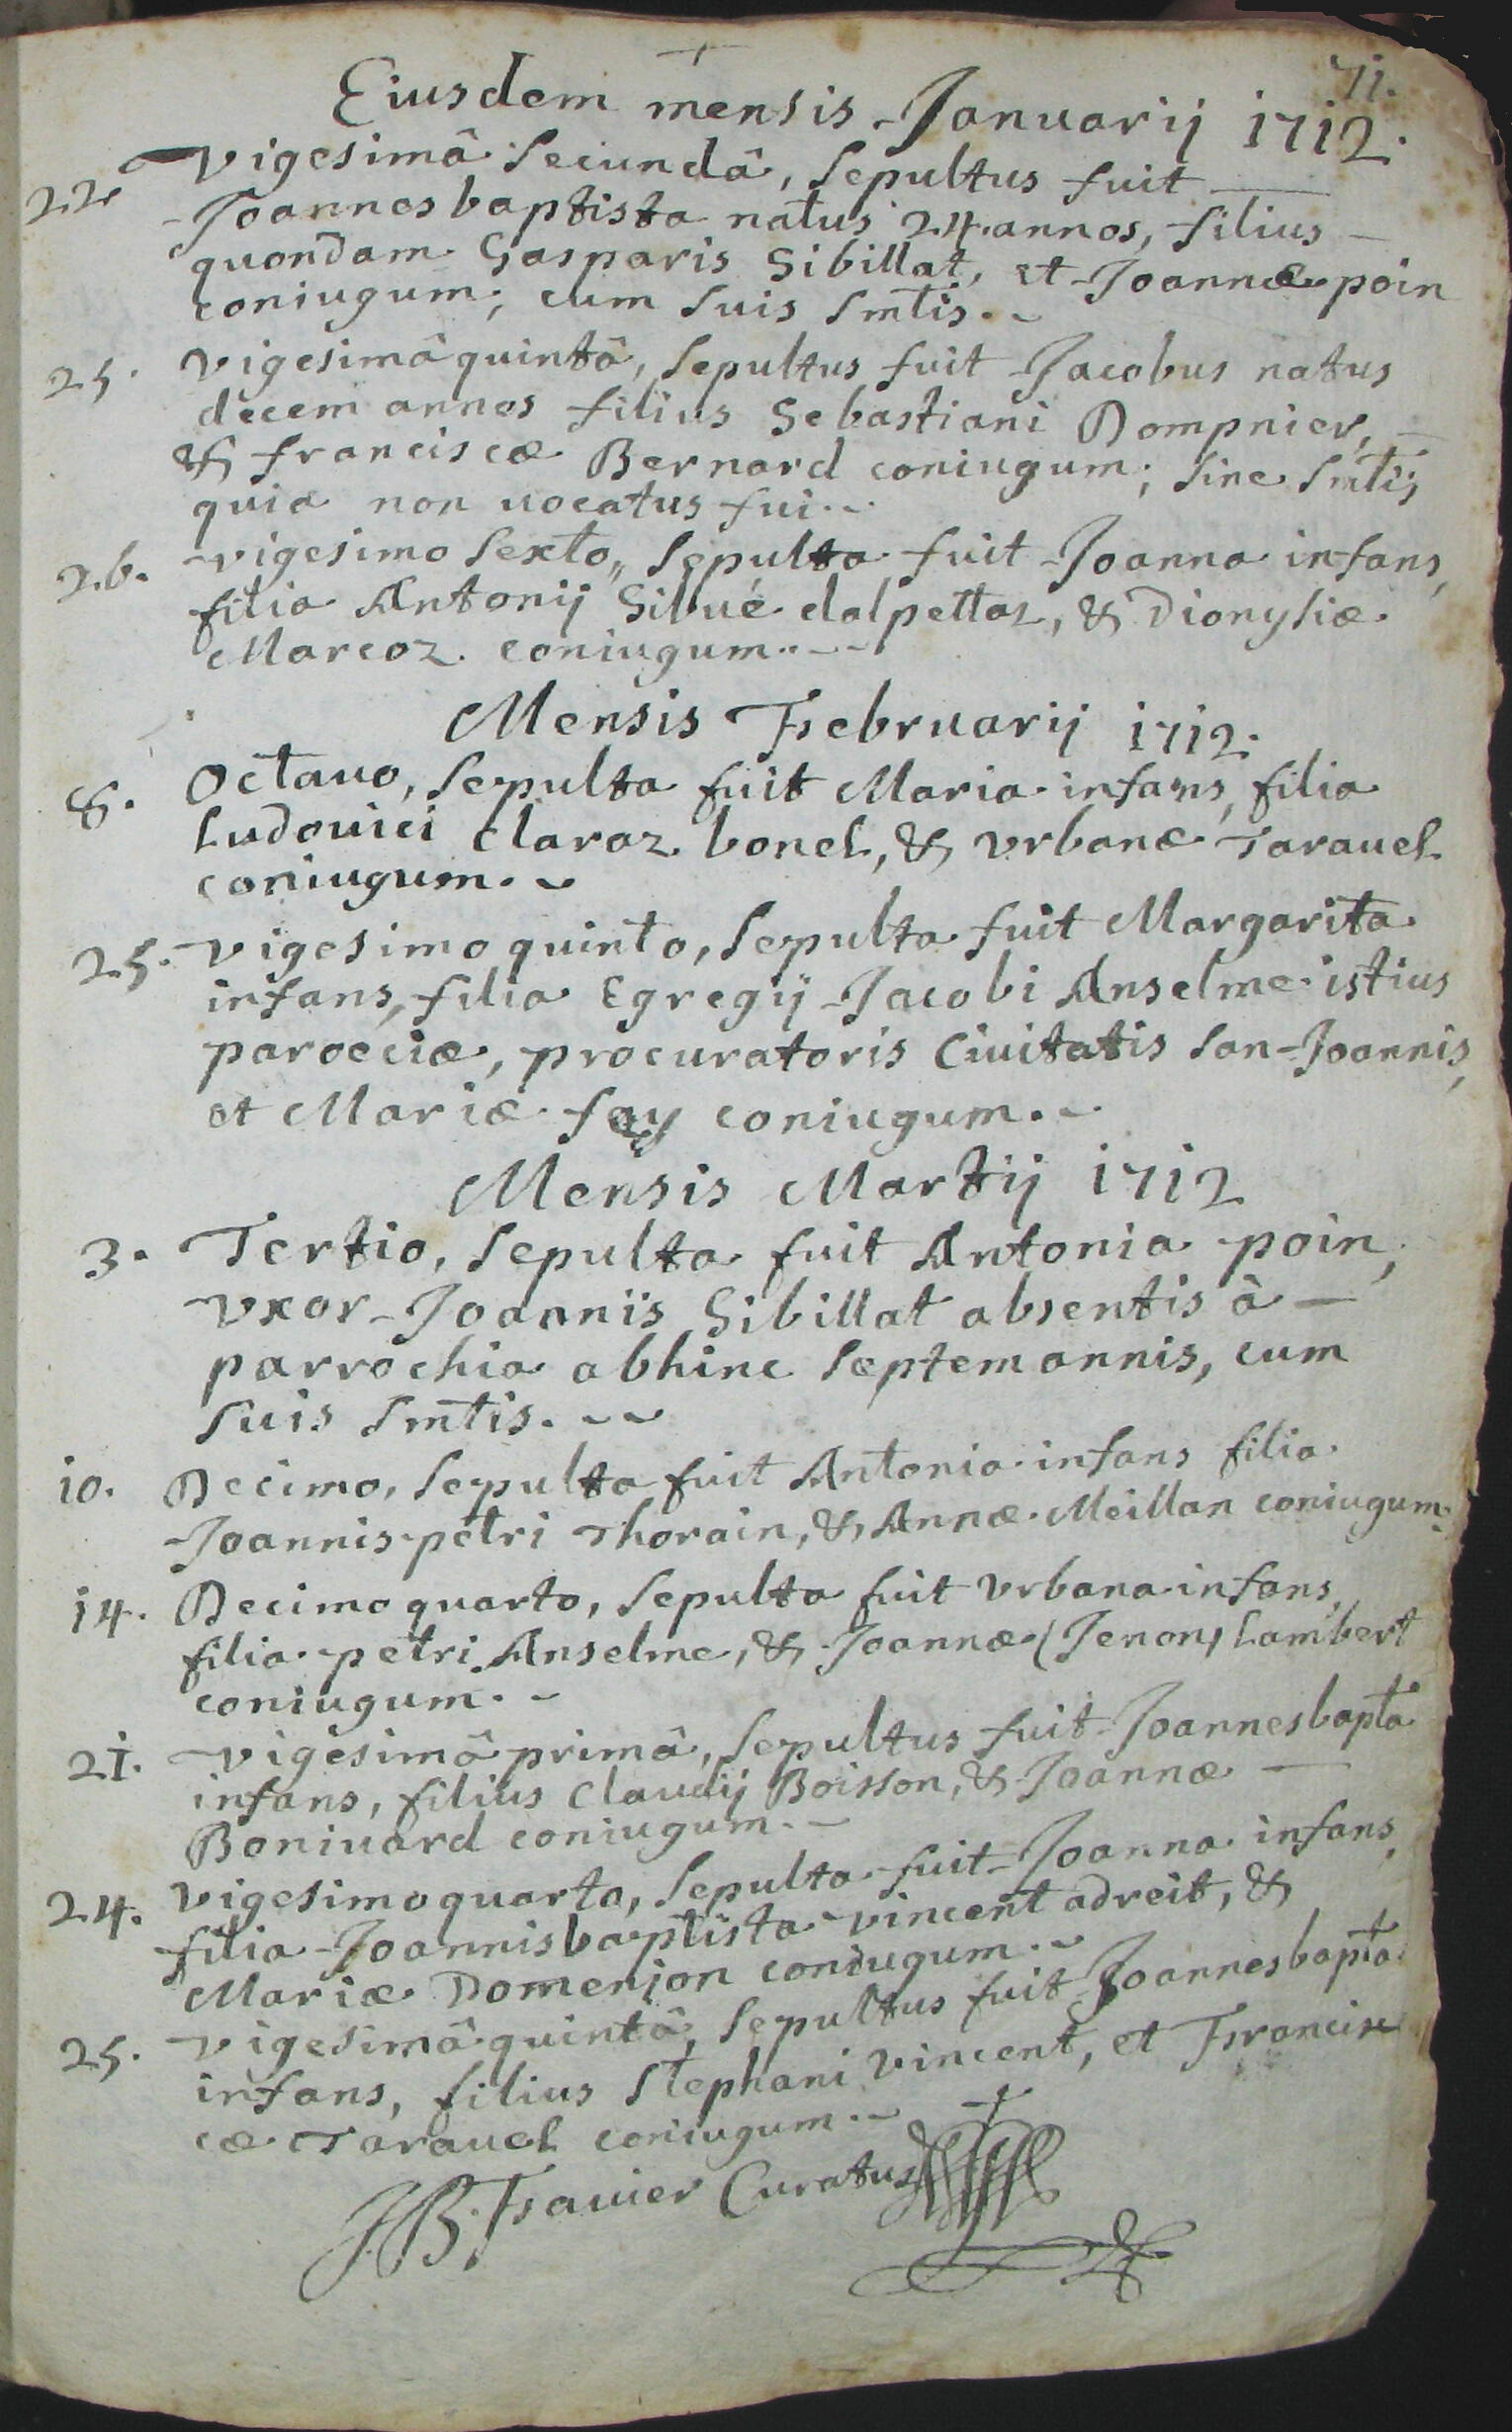 71.
Eiusdem mensis Januarij 1712.
22 Vigesimâ secundâ, sepultus fuit
Joannesbaptista natus 24 annos, filius
quondam Gasparis Sibillat, et Joannæ poin
coniugum; cum suis smtis.
25. Vigesimâ quintâ, sepultus fuit Jacobus natus
decem annos filius Sebastiani Dompnier,
& franciscæ Bernard coniugum; sine smtis
quia non uocatus fui.
26. vigesimo sexto, sepulta fuit Joanna infans,
filia Antonij Sibué dalpettaz, & Dionysiæ
Marcoz coniugum.
Mensis Februarij 1712.
8. Octauo, sepulta fuit Maria infans, filia
Ludouici claraz bonel, & vrbanæ Tarauel
coniugum.
25. vigesimo quinto, sepulta fuit Margarita
infans, filia Egregij Jacobi Anselme istius
parocciæ, procuratoris Ciuitatis san-Joannis,
et Mariæ fay coniugum.
Mensis Martij 1712
3. Tertio, sepulta fuit Antonia poin,
vxor Joannis Sibillat absentis à
parrochia abhinc septem annis, cum
suis smtis.
10. Decimo, sepulta fuit Antonia infans filia
Joannis petri Thorain, & Annæ Meillan coniugum.
14. Decimo quarto, sepulta fuit vrbana infans,
filia petri Anselme, & Joannæ (Jenon) Lambert
coniugum.
21. vigesimâ primâ, sepultus fuit Joannesbapta
infans, filius Claudij Boisson, & Joannæ
Boniuard coniugum.
24. vigesimo quarto, sepulta fuit Joanna infans,
filia Joannisbaptista vincent adreit, &
Mariæ Domenjon coniugum.
25. vigesimâ quintâ, sepultus fuit Joannesbapta
infans, filius Stephani vincent, et Francis
cæ Tarauel coniugum.
JB. Fauier Curatus